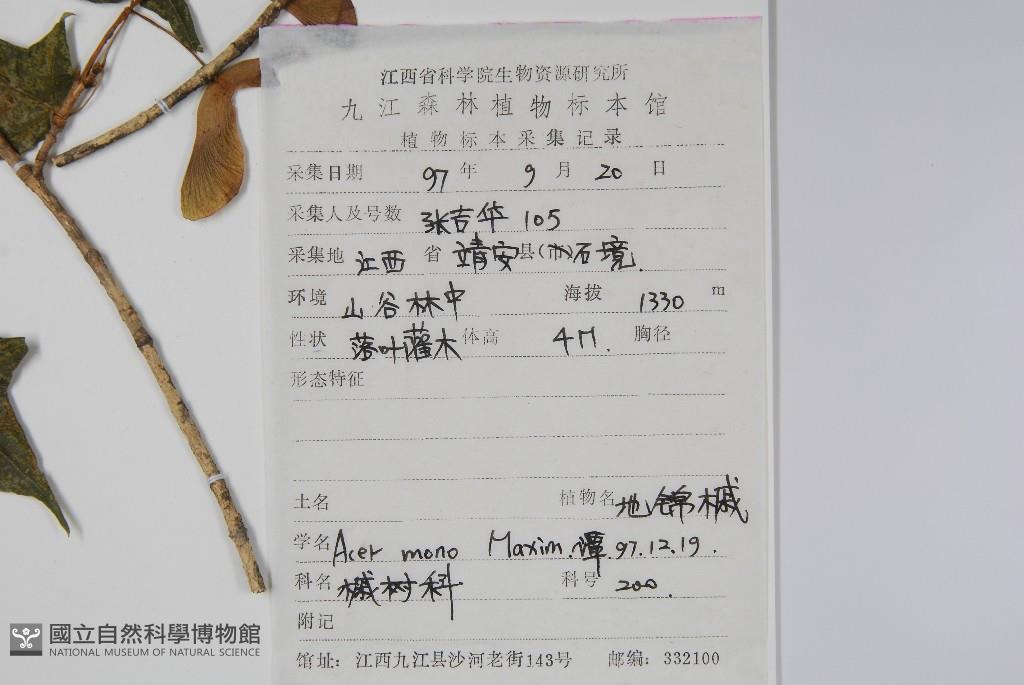 江西省科学院生物资源研究所
九江森林植物标本馆
植物标本采集记录
采集日期 97 年 9 月 20 日
采集人及号数 张吉华 105
采集地 江西 省 靖安 县(市) 石境.
环境 山谷林中 海拔 1330 m
性状 落叶灌木 体高 4M. 胸径
形态特征
土名 植物名 地锦槭
学名 Acer mono Maxim. 谭 97.12.19.
科名 槭树科 科号 200.
附记
馆址: 江西九江县沙河老街143号 邮编: 332100
國立自然科學博物館
NATIONAL MUSEUM OF NATURAL SCIENCE